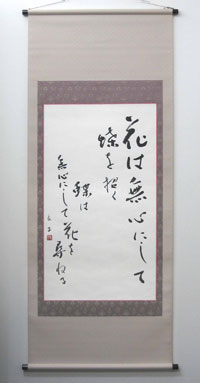 花は無心にして
蝶を招く
蝶は
無心にして花を尋ねる